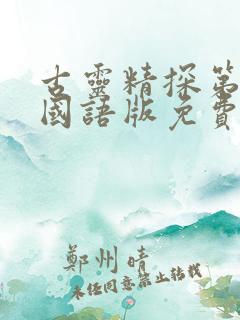 古靈精探第
國語版免費
鄭州晴
未經同意禁止轉載